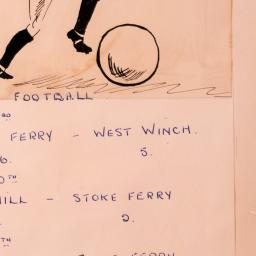 FOOTBALL
RD
FERRY - WEST WINCH.
6. 5.
TH
HILL - STOKE FERRY
2.
TH
FERRY